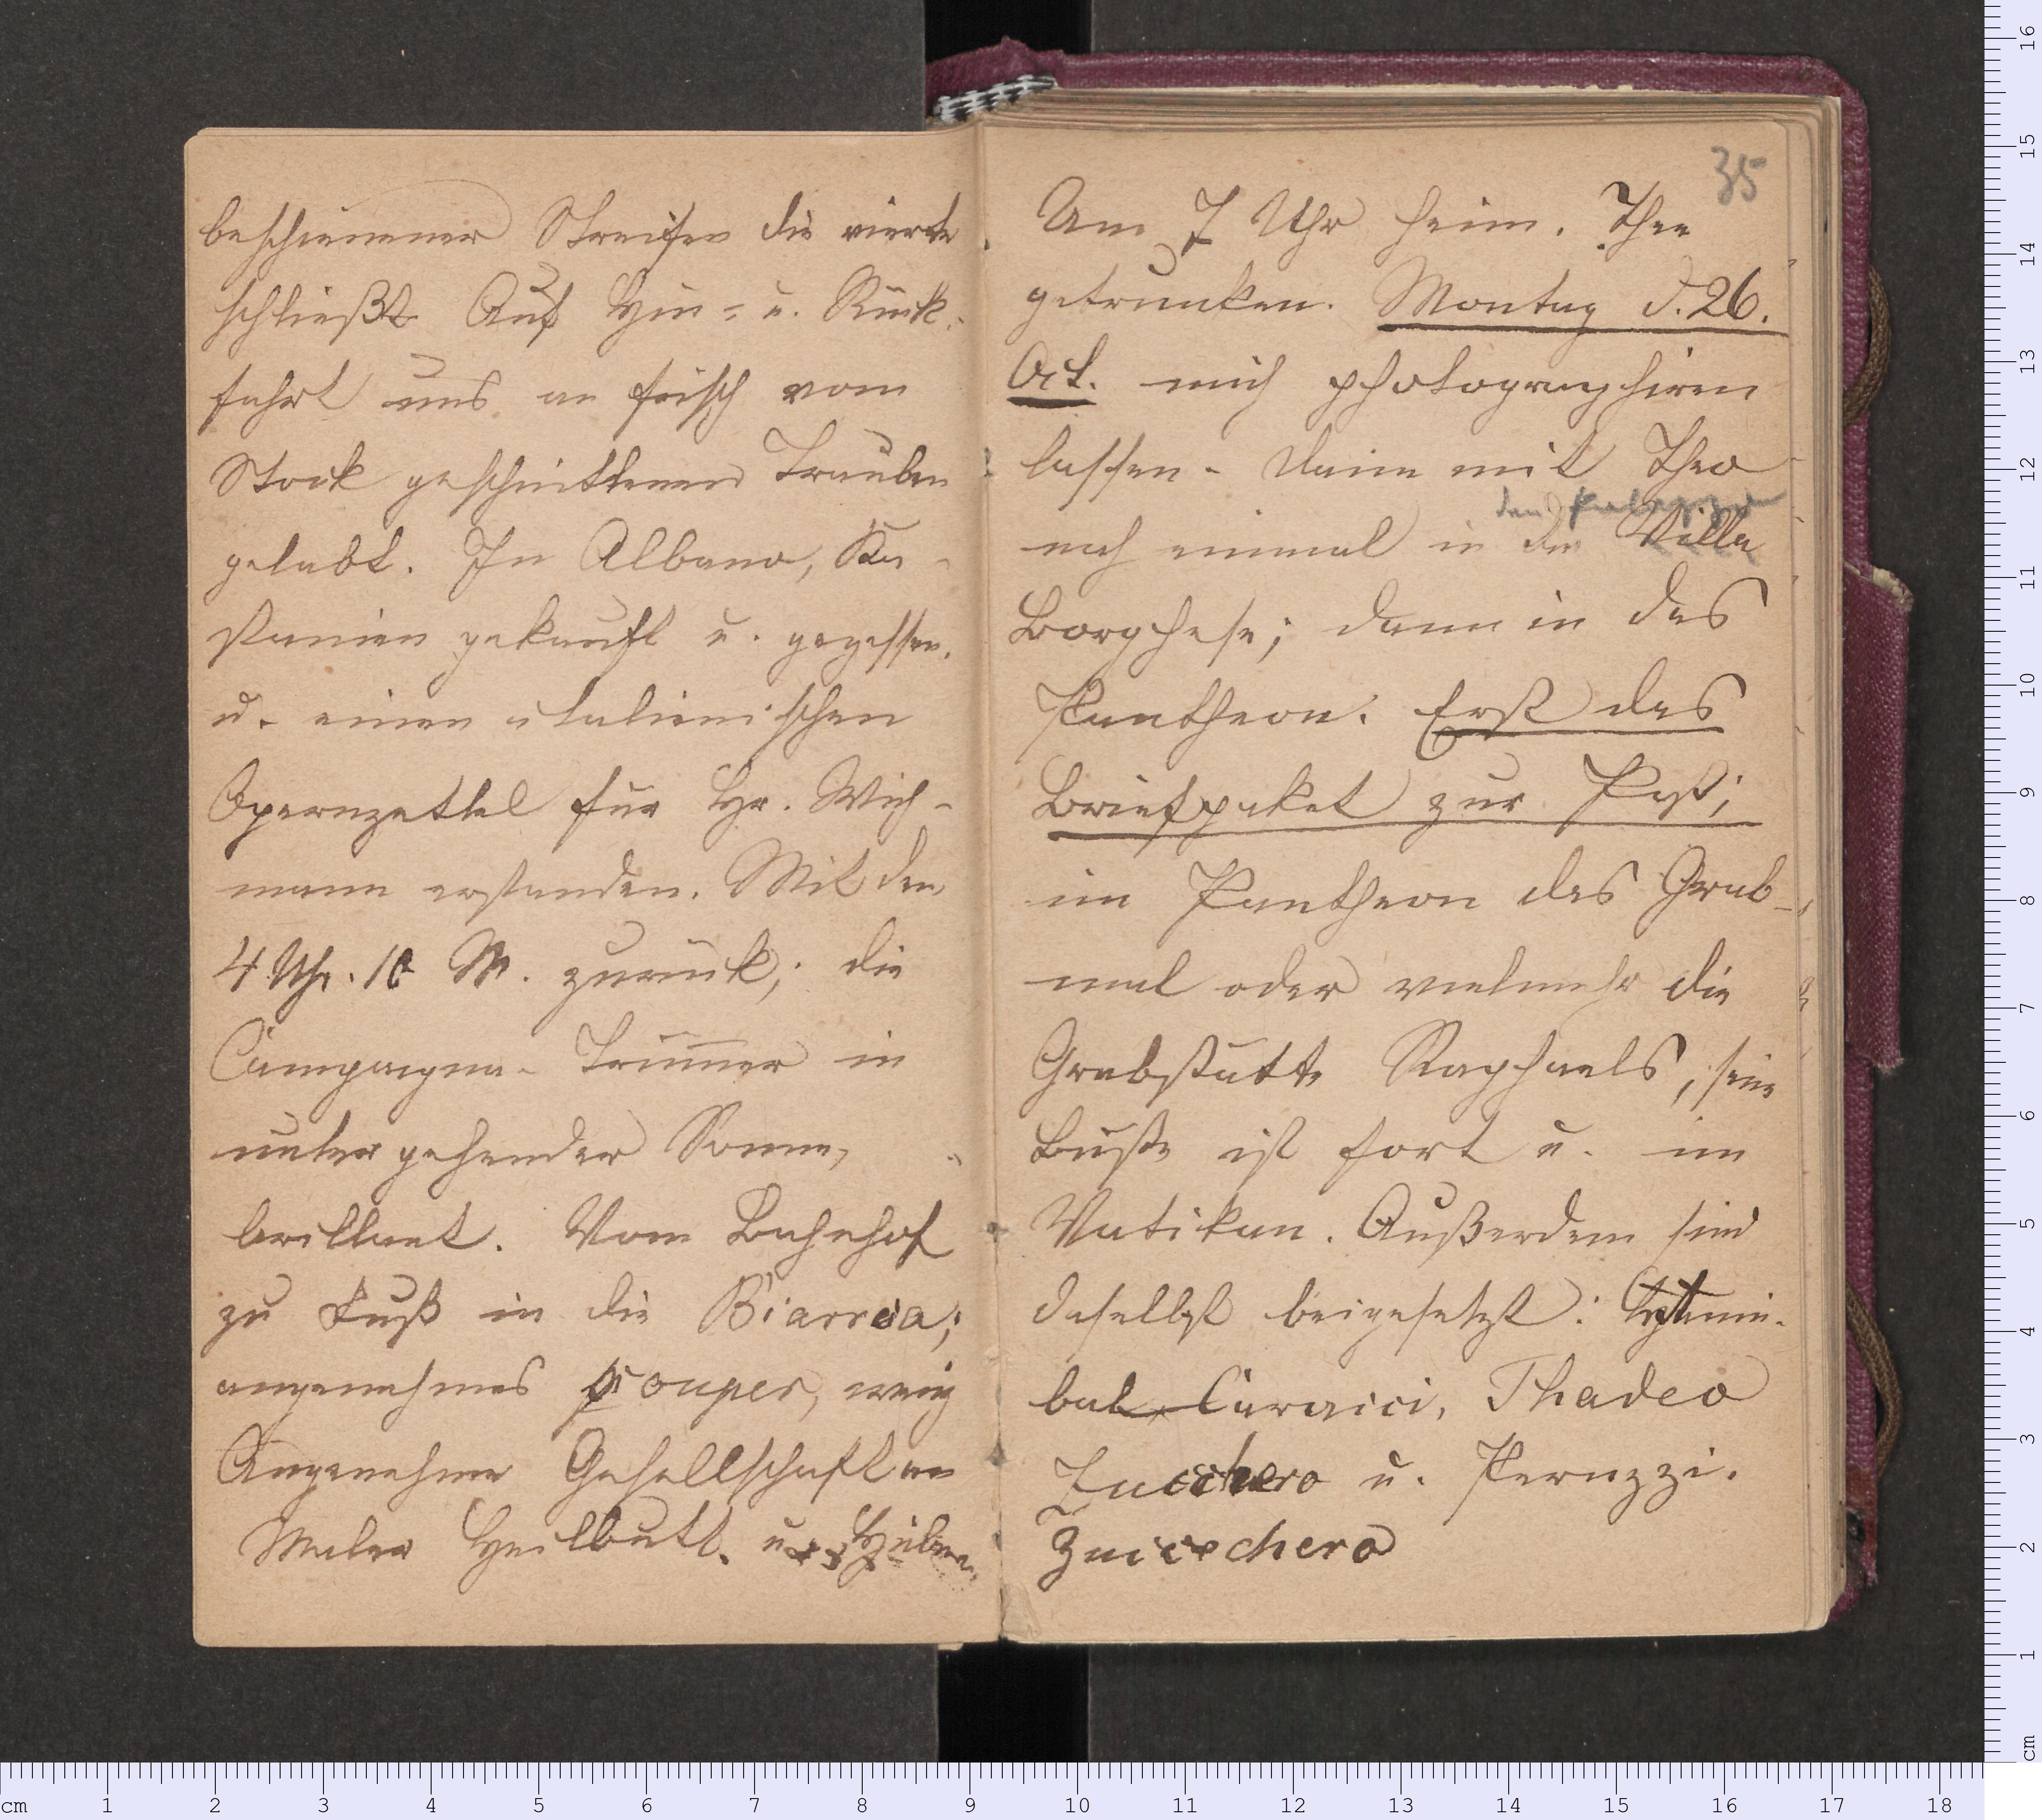 beschienener Streifen die vierte
schließt. Auf Hin- u. Rück-
fahrt uns an frisch vom
Stock geschnittenen Trauben
gelabt. In Albano, Ka-
stanien gekauft u. gegessen.
u. einen italienischen
Opernzettel für Hr. Wich-
mann erstanden. Mit den
4 Uhr. 10 M. zurück; die
Campagna-Trümmer in
untergehender Sonne,
brillant. Vom Bahnhof
zu Fuß in die
angenehmes souper, wenig
Angenehme Gesellschaft an
Maler Heilbutt. u.
35
Um 7 Uhr heim. Thee
getrunken. Montag d. 26.
Oct. mich photographiren
lassen. Dann mit Theo
den Palazzo
noch einmal in die Villa
Borghese; dann in das
Pantheon. Erst das
Briefpaket zur Post;
im Pantheon das Grab-
mal oder vielmehr die
Grabstätte Raphaels, seine
Büste ist fort u. im
Vatikan. Außerdem sind
daselbst beigesetzt:
bal Caracci, Thadeo
Zucchero u. Peruzzi.
Zuccchero